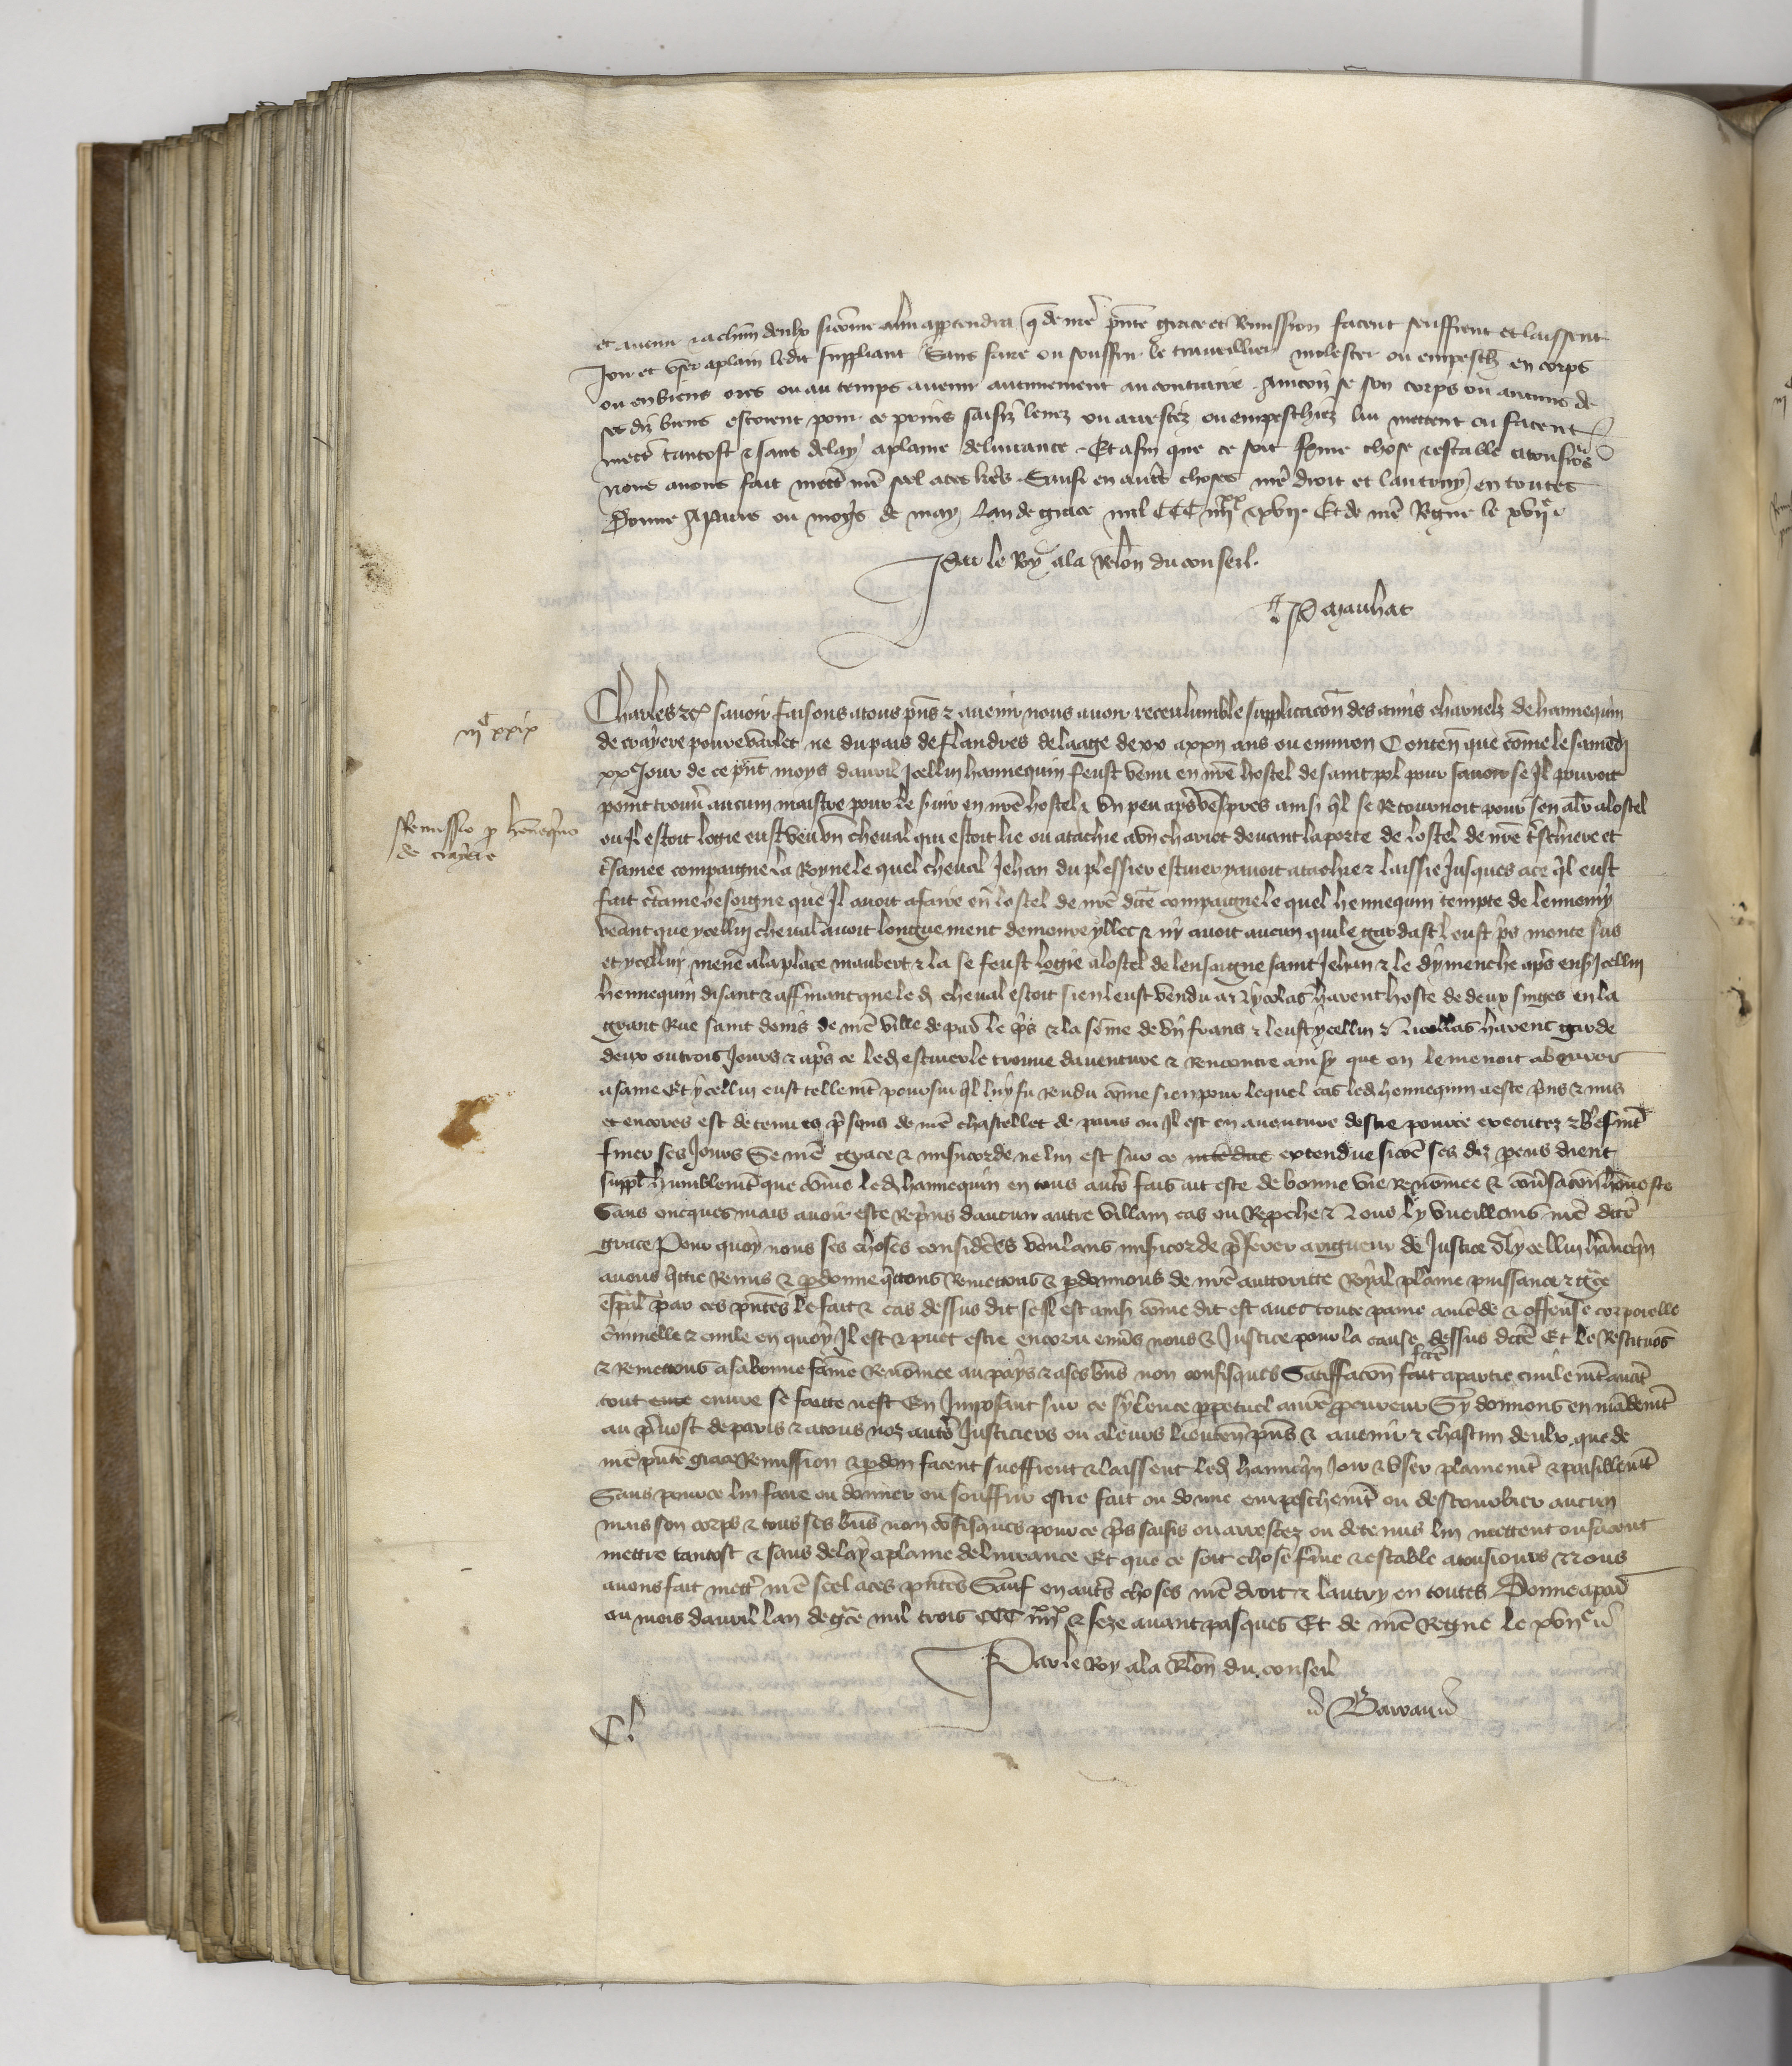 et avenir & a chascun deulx sicome a lui appartendra que de nre pnte grace et Remission facent seuffrent et laissent
Joir et user aplain ledit suppliant Sans faire ou souffrir le travaillier molester ou empeschr en corps
ou en biens ores ou au temps avenir aucunement au contraire Aincois se son corps ou aucuns de
ses diz biens estoient pour ce prins saisiz levez ou arrestez ou empeschiez lui mettent ou facent
mectre tantost & sans delay a plaine delivrance Et afin que ce soit ferme chose & estable a tousjours
nous avons fait mectre nre seel a ces lres Sauf en autres choses nre droit et lautruy en toutes
Donne A Paris ou moys de may Lan de grace mil CCC iiiixx & xvii Et de nre Regne le xviie
Par le Roy a la Relon du conseil
P Manhac
iiic xxix
Charles &c savoir faisons a tous pns & avenir nous avoir receu lumble supplicacon des amis charnelz de hannequin
de crayere povre varlet ne du pais de flandres de laage de xx a xxii ans ou environ Conten que come le samedi
xxe Jour de ce pnt moys davril Jcellui hannequin feust venu en nre hostel de saint pol pour savoir se Jl pourroit
point trouver aucun maistre pour le servir en nre hostel & un peu apres vespres ainsi quil se Retournoit pour sen aler a lostel
Remissio p henequino
de crayere
ou Jl estoit logie eust veu un cheval qui estoit lie ou atachie a un chariot devant la porte de lostel de nre tres chiere et
tres amee compaigne la Royne le quel cheval Jehan du plessier escuier y avoit atachie & laissie Jusques a ce quil eust
fait certaine besoigne que Jl avoit a faire en lostel de nre dicte compaigne le quel hennequin tempte de lennemy
veant que ycellui cheval avoit longuement demoure yllec & ny avoit aucun qui le gardast leust pris monte sus
et ycellui mene a la place maubert & la se feust logie a lostel de lensaigne saint Jehan & le dymenche apres ensJcellui
hennequin disant & affirmant que led cheval estoit sien leust vendu a Nycolas havent hoste de deux singes en la
grant Rue saint denis de nre ville de par le pris & la some de vii frans & leust ycellui Nicollas havent garde
deux ou trois Jours & apres ce led escuier le trouve daventure & Rencontre ainsy que on le menoit abeuvrer
a saine Et ycellui eust tellement poursui quil luy fu Rendu come sien pour lequel cas led hennequin a este prins & mis
et encores est detenu es prisons de nre chastellet de paris ou Jl est en aventure destre pource executez & briefment
finer ses Jours Se nre grace & misericorde ne lui est sur ce extendue sicoe ses diz parens dient
suppl humblement que come led hannequin en tous autres fais ait este de bonne vie Renomee & conversacon honeste
Sans oncquesmais avoir este Reprins daucun autre villain cas ou Reproche Nous ly vueillans nre dicte
grace Pour quoy nous ses choses considerees voulans misericorde preferer a rigueur de Justice a ycellui hannequin
avons quitte Remis & pardonne quittons Remettons & pardonnons de nre auctorite Royal plaine puissance & grace
espal par ces pntes le fait & cas dessus dit se Jl est ainsi come dit est avec toute paine amende & offense corporelle
criminelle & civile en quoy Jl est & puet estre encoru envers nous & Justice pour la cause dessus dicte Et le Restituons
& Remettons a sa bonne fame Renomee au pays & a ses biens non confisques Satisffacon fait faicte a partie civilement avant
tout euvre se faitte nest En Jmposant sur ce sylence perpetuel a nre procureur Sy donnons en mandement
au prevost de paris & a tous noz autres Justiciers ou a leurs lieuten pns & avenir & chascun deulx que de
nre pnte grace Remission & pardon facent sueffrent & laissent led hannequin Joir & user plainement & paisiblement
Sans pource lui faire ou donner ou souffrir estre fait ou donne empeschement ou destourbier aucun
mais son corps & tous ses biens non confisques pource pris saisis ou arrestez ou detenus lui mettent ou facent
mettre tantost & sans delay a plaine delivrance Et que ce soit chose ferme & estable a tousjours Nous
avons fait mettre nre seel a ces pntes Sauf en autres choses nre droit & lautry en toutes Donne a par
au mois davril lan de grace mil trois CCC iiiixx & seze avant pasques Et de nre Regne le xviie
Par le Roy a la Relon du conseil
Barrau